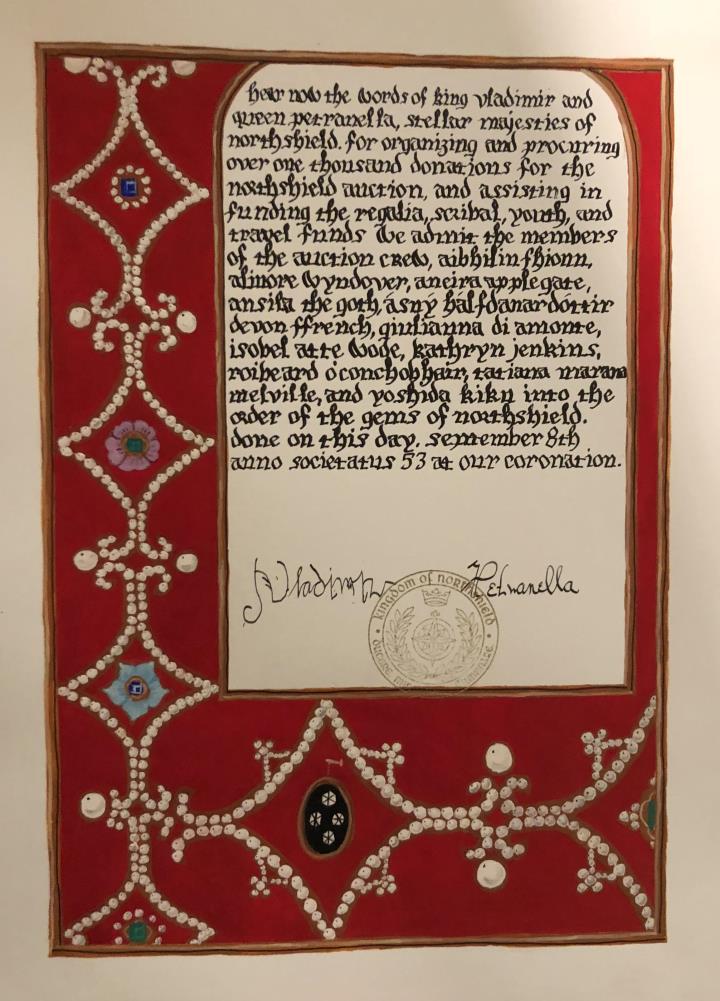 hear now the words of king vladimir and
queen petranella, stellar majesties of
northshield. for organizing and procuring
over one thousand donations for the
northshield auction, and assisting in
funding the regalia, scribal, youth, and
travel funds we admit the members
of the auction crew, aibhilin fhionn,
alinore wyndover, aneira applegate,
ansila the goth, ásný halfdanardóttir
devon ffrench, giulianna di amonte,
isobel atte woge, kathryn jenkins,
roibeard o'conchobhair, tatiana marana
melville, and yoshida kiku into the
order of the gems of northshield.
done on this day, september 8th
anno societatus 53 at our coronation.
Vladimir Petranella
kingdom of northshield